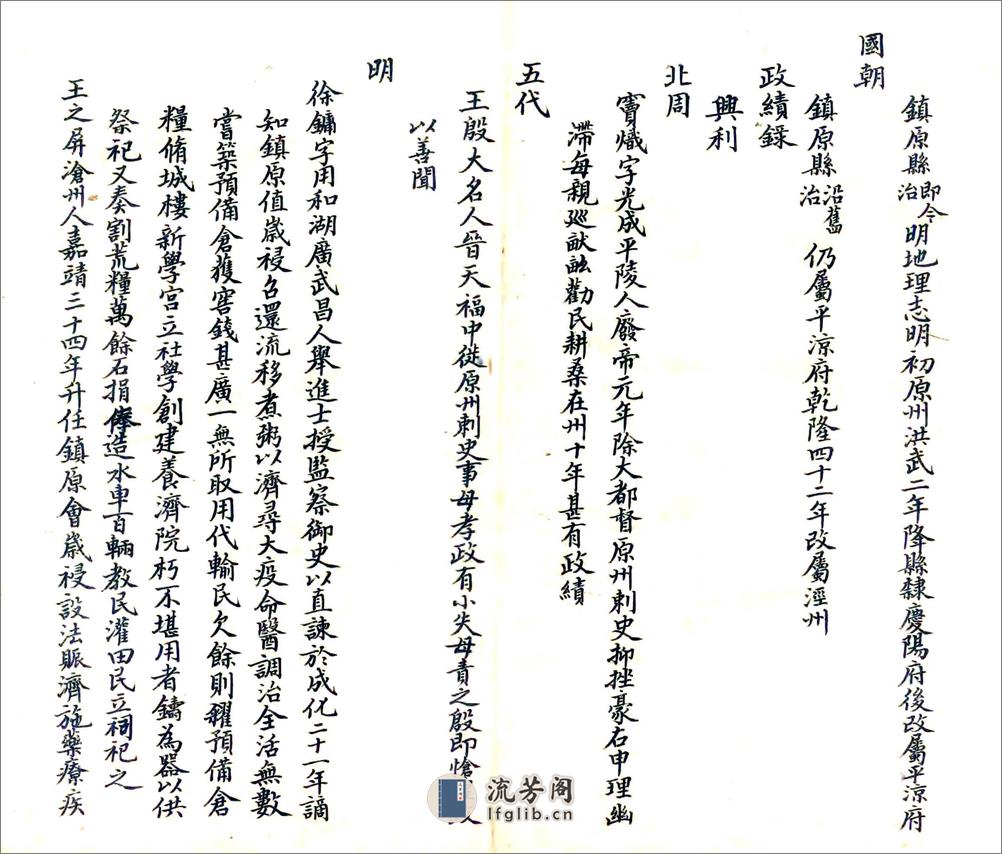 鎮原縣即今治明地理志明初原州洪武二年降縣隸慶陽府後改屬平涼府
國朝
鎮原縣沿舊治仍屬平涼府乾隆四十二年改屬涇州
政績錄
興利
北周
竇熾字光成平陵人廢帝元年除大都督原州刺史抑挫豪右申理幽
滯每親廵畎畝勸民耕桑在州十年甚有政績
五代
王殷大名人晉天福中徙原州刺史事母孝政有小失母責之殷即愴
以善聞
明
徐鏞字用和湖廣武昌人舉進士授監察御史以直諫於成化二十一年謫
知鎮原值歲祲召還流移煮粥以濟尋大疫命醫調治全活無數
嘗築預備倉獲窖錢甚廣一無所取用代輸民欠餘則糴預備倉
糧脩城樓新學宮立社學創建養濟院朽不堪用者鑄為器以供
祭祀又奏割荒糧萬餘石捐俸造水車百輛教民灌田民立祠祀之
王之屏滄州人嘉靖三十四年升任鎮原會歲祲設法賑濟施藥療疾
流芳阁
lfglib.cn